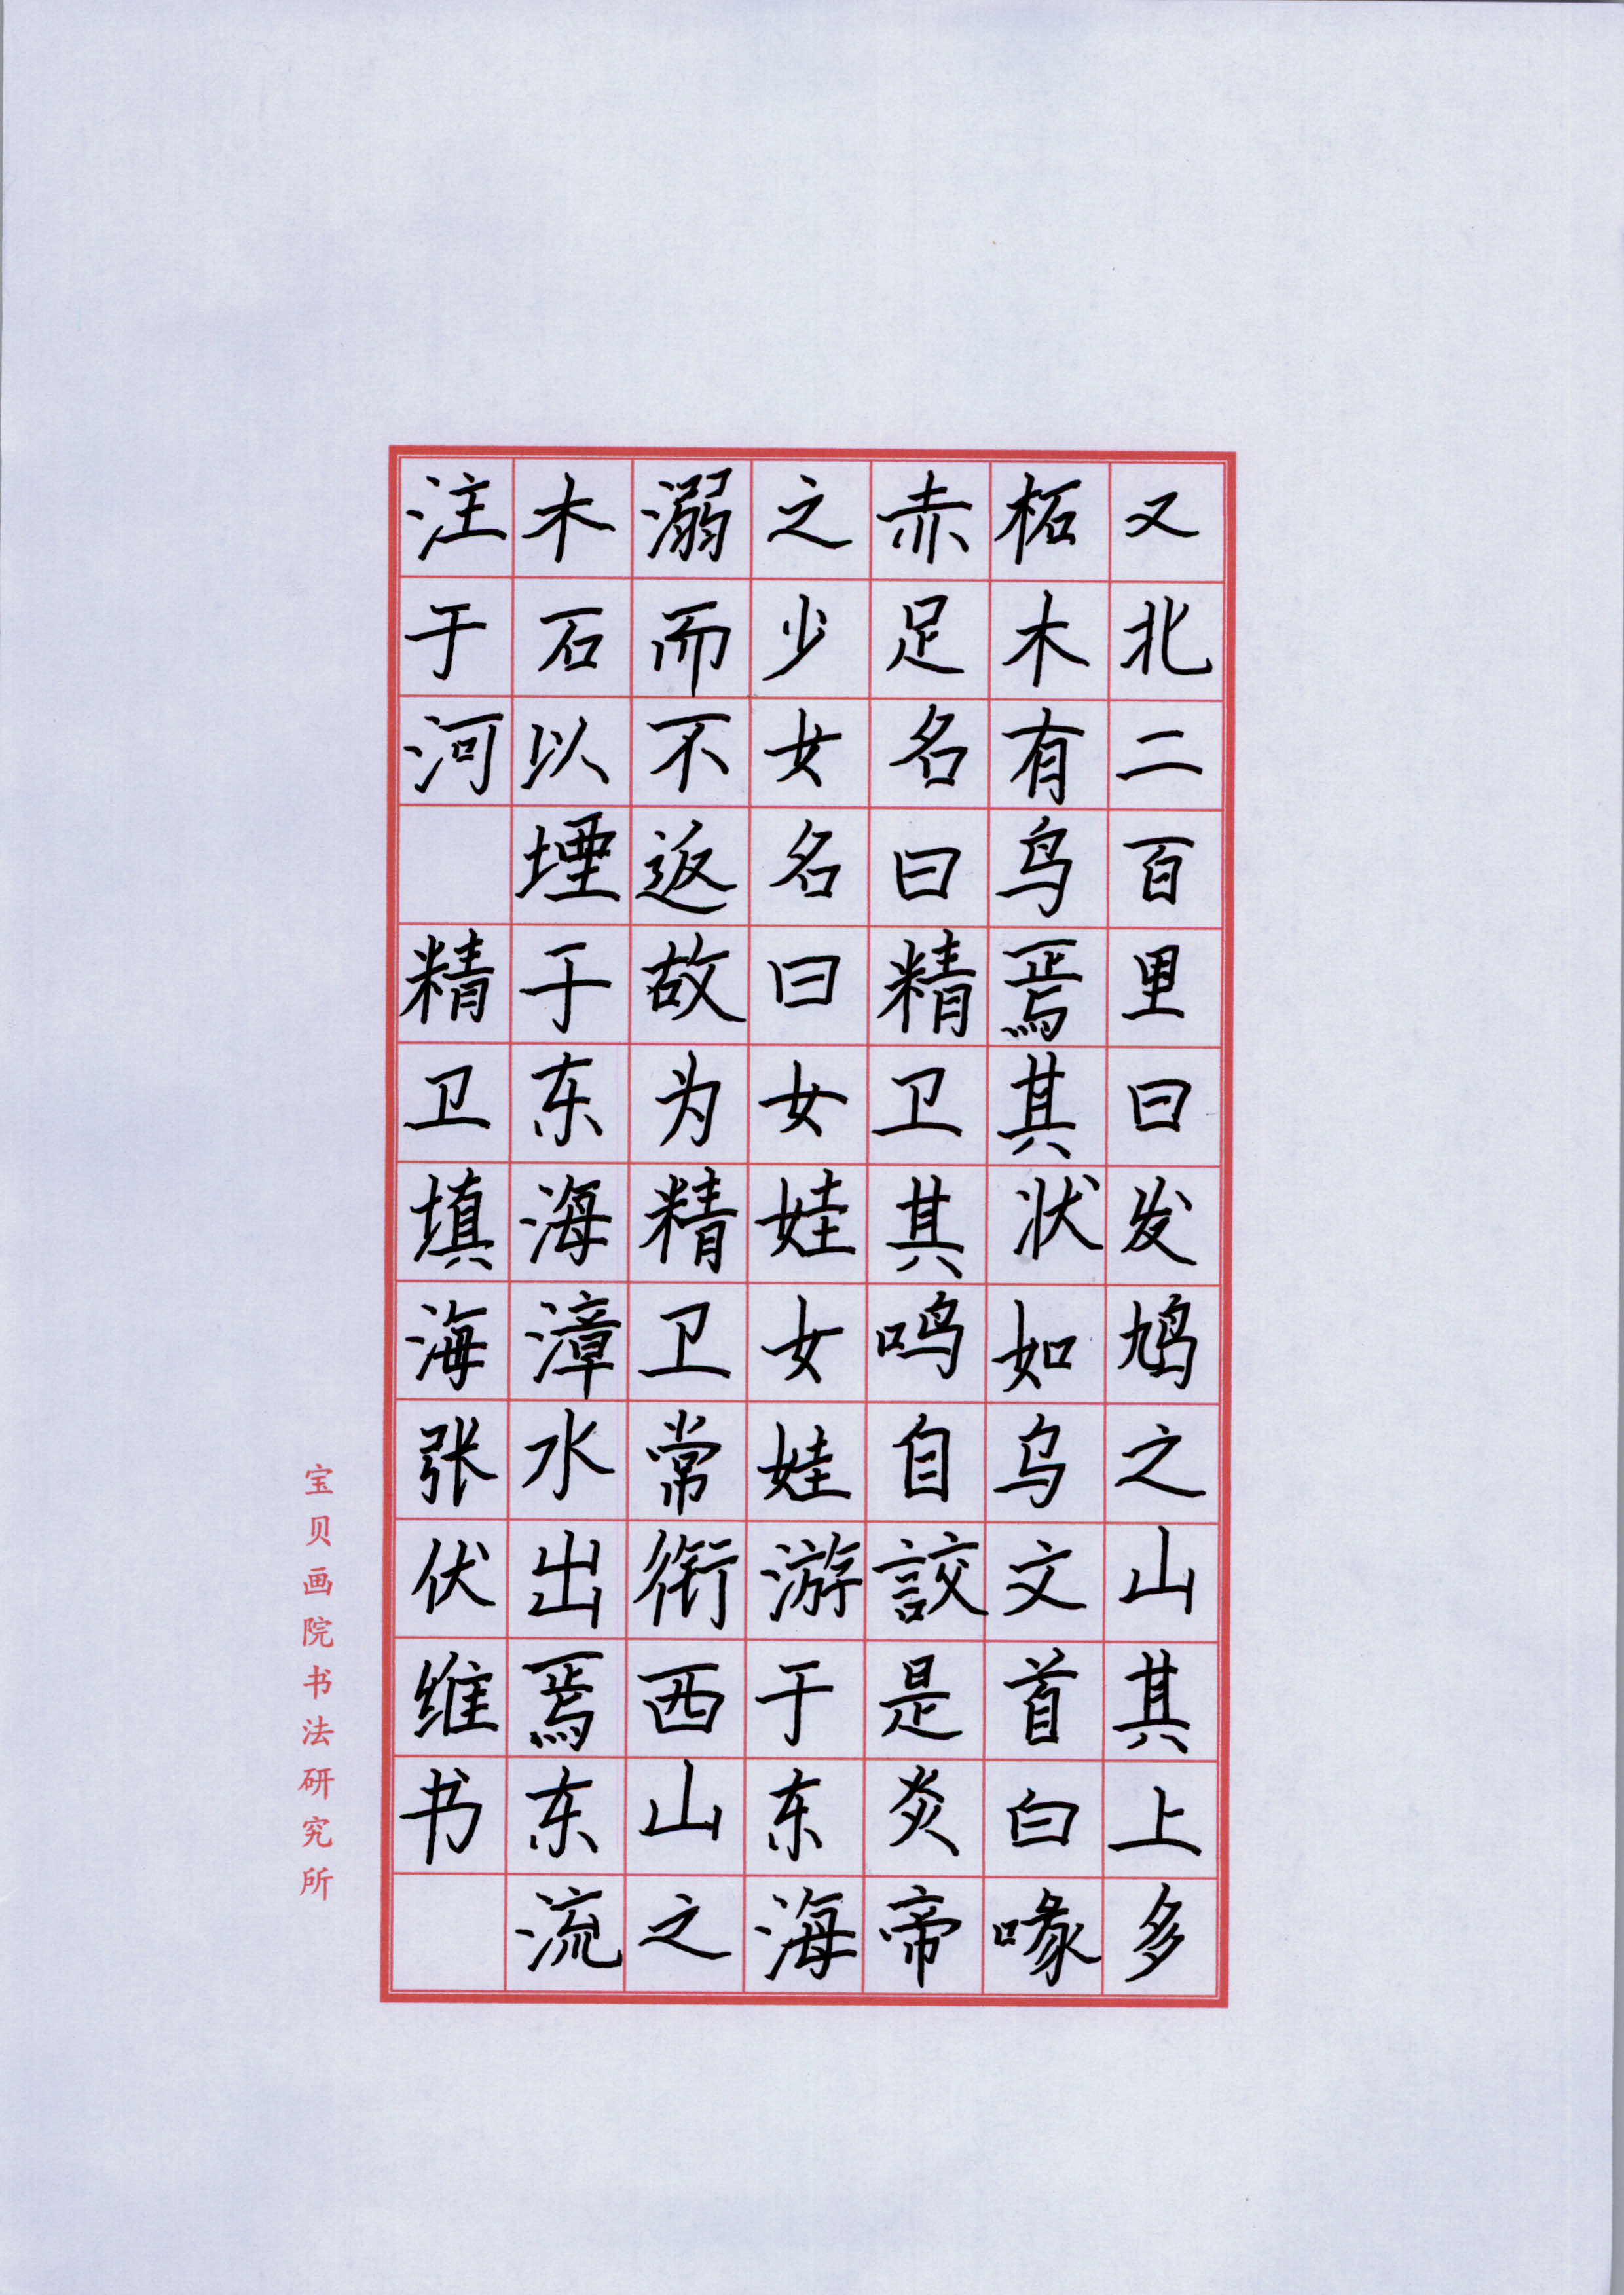 又北二百里曰发鸠之山其上多
柘木有鸟焉其状如乌文首白喙
赤足名曰精卫其鸣自詨是炎帝
之少女名曰女娃女娃游于东海
溺而不返故为精卫常衔西山之
木石以堙于东海漳水出焉东流
注于河 精卫填海张伏维书
宝贝画院书法研究所